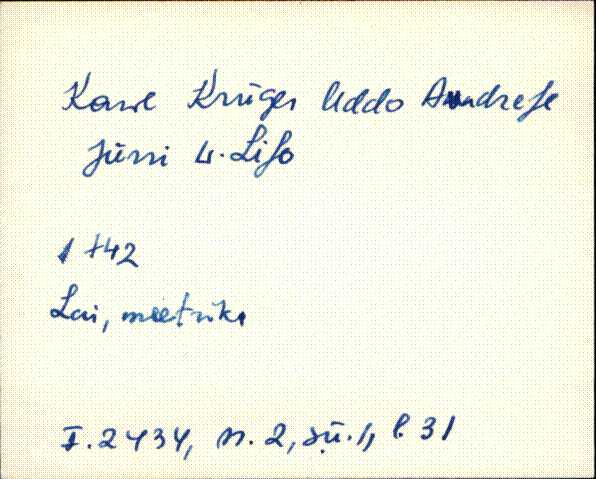 Karl Krüger Uddo Andrese
Jüri L. Liso
1742
Lai, meetrika
F. 2434, n. 2, sü. 1, l. 31